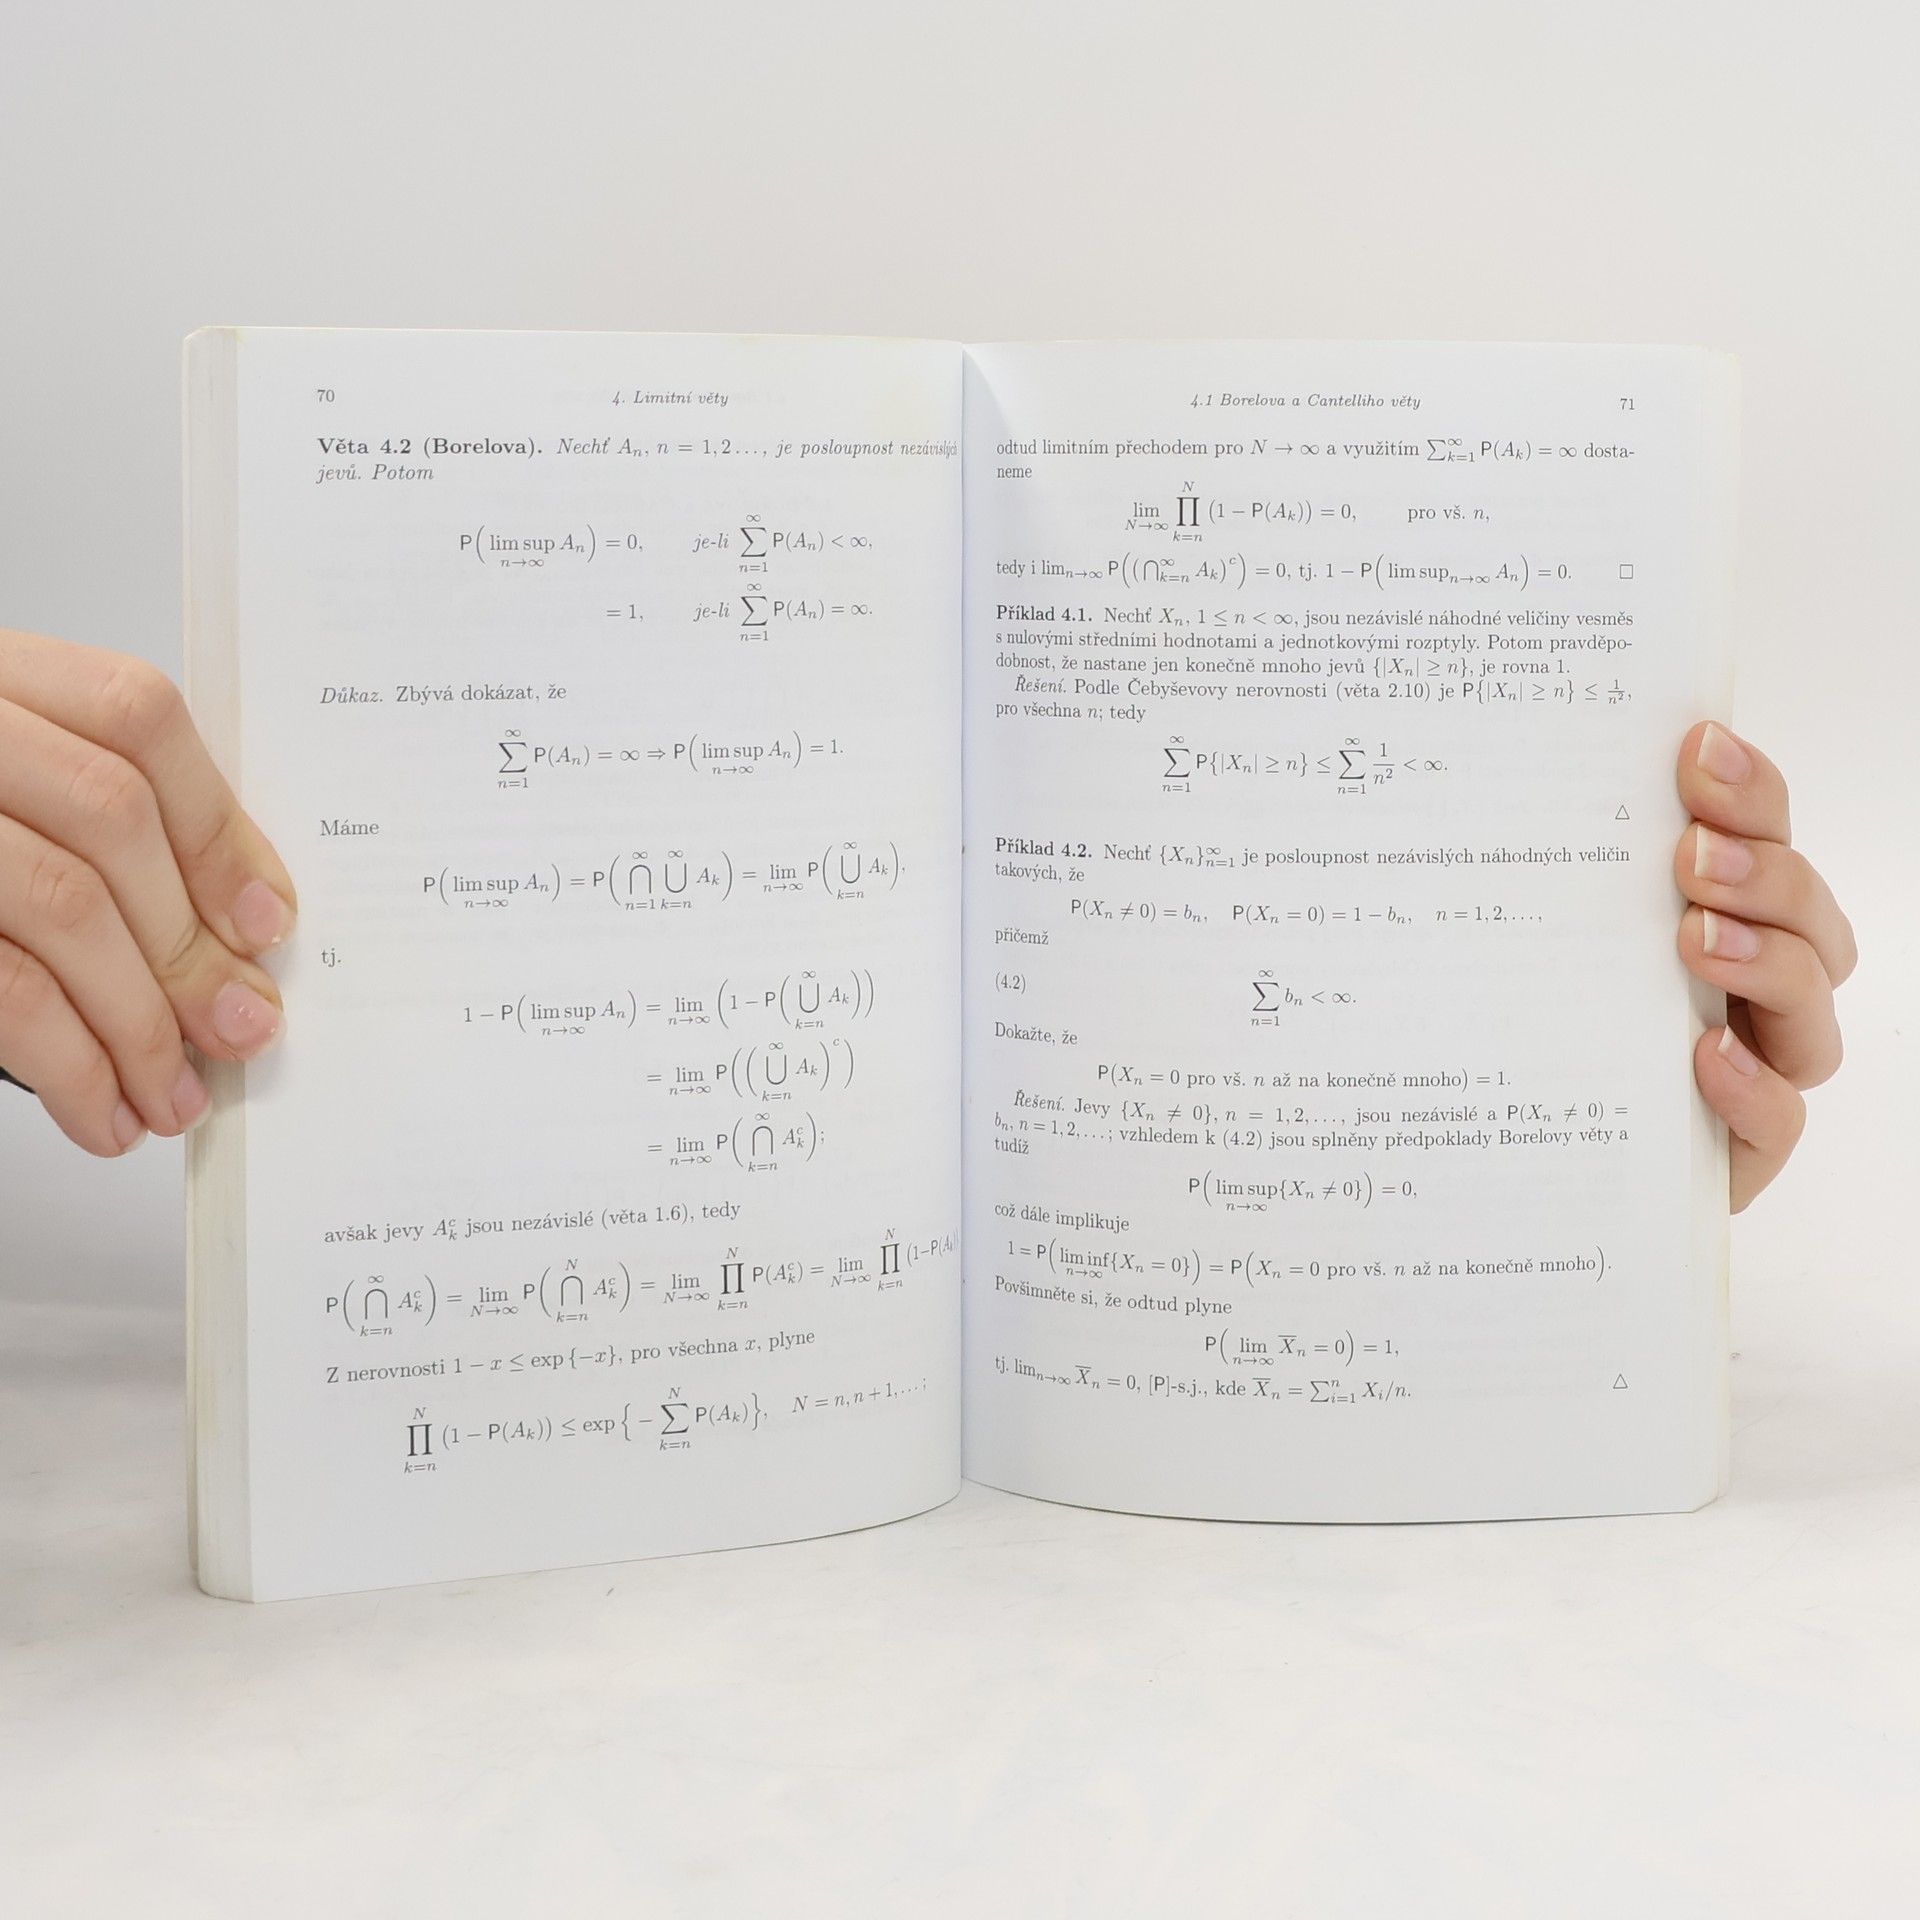 70
4. Limitní věty
Věta 4.2 (Borelova). Nechť Aₙ, n = 1, 2 . . . , je posloupnost nezávislých
jevů. Potom
P( lim sup_{n→∞} Aₙ ) = 0, je-li ∑_{n=1}^{∞} P(Aₙ) < ∞,
= 1, je-li ∑_{n=1}^{∞} P(Aₙ) = ∞.
Důkaz. Zbývá dokázat, že
∑_{n=1}^{∞} P(Aₙ) = ∞ ⇒ P( lim sup_{n→∞} Aₙ ) = 1.
Máme
P( lim sup_{n→∞} Aₙ ) = P( ⋂_{n=1}^{∞} ⋃_{k=n}^{∞} A_k ) = lim_{n→∞} P( ⋃_{k=n}^{∞} A_k ),
tj.
1 − P( lim sup_{n→∞} Aₙ ) = lim_{n→∞} ( 1 − P( ⋃_{k=n}^{∞} A_k ) )
= lim_{n→∞} P( ( ⋃_{k=n}^{∞} A_k )^c )
= lim_{n→∞} P( ⋂_{k=n}^{∞} A_k^c );
avšak jevy A_k^c jsou nezávislé (věta 1.6), tedy
P( ⋂_{k=n}^{∞} A_k^c ) = lim_{N→∞} P( ⋂_{k=n}^{N} A_k^c ) = lim_{N→∞} ∏_{k=n}^{N} P(A_k^c) = lim_{N→∞} ∏_{k=n}^{N} (1−P(A_k))
Z nerovnosti 1 − x ≤ exp {−x}, pro všechna x, plyne
∏_{k=n}^{N} (1 − P(A_k)) ≤ exp { − ∑_{k=n}^{N} P(A_k) }, N = n, n + 1, . . . ;
4.1 Borelova a Cantelliho věty
71
odtud limitním přechodem pro N → ∞ a využitím ∑_{k=1}^{∞} P(A_k) = ∞ dosta-
neme
lim_{N→∞} ∏_{k=n}^{N} (1 − P(A_k)) = 0, pro vš. n,
tedy i lim_{n→∞} P( ( ⋂_{k=n}^{∞} A_k )^c ) = 0, tj. 1 − P( lim sup_{n→∞} Aₙ ) = 0. □
Příklad 4.1. Nechť Xₙ, 1 ≤ n < ∞, jsou nezávislé náhodné veličiny vesměs
s nulovými středními hodnotami a jednotkovými rozptyly. Potom pravděpo-
dobnost, že nastane jen konečně mnoho jevů {|Xₙ| ≥ n}, je rovna 1.
Řešení. Podle Čebyševovy nerovnosti (věta 2.10) je P{|Xₙ| ≥ n} ≤ 1/n²,
pro všechna n; tedy
∑_{n=1}^{∞} P{|Xₙ| ≥ n} ≤ ∑_{n=1}^{∞} 1/n² < ∞.
△
Příklad 4.2. Nechť {Xₙ}_{n=1}^{∞} je posloupnost nezávislých náhodných veličin
takových, že
P(Xₙ ≠ 0) = bₙ, P(Xₙ = 0) = 1 − bₙ, n = 1, 2, . . . ,
přičemž
(4.2) ∑_{n=1}^{∞} bₙ < ∞.
Dokažte, že
P(Xₙ = 0 pro vš. n až na konečně mnoho) = 1.
Řešení. Jevy {Xₙ ≠ 0}, n = 1, 2, . . . , jsou nezávislé a P(Xₙ ≠ 0) =
bₙ, n = 1, 2, . . . ; vzhledem k (4.2) jsou splněny předpoklady Borelovy věty a
tudíž
P( lim sup_{n→∞} {Xₙ ≠ 0} ) = 0,
což dále implikuje
1 = P( lim inf_{n→∞} {Xₙ = 0} ) = P( Xₙ = 0 pro vš. n až na konečně mnoho ).
Povšimněte si, že odtud plyne
P( lim_{n→∞} X̅ₙ = 0 ) = 1,
tj. lim_{n→∞} X̅ₙ = 0, [P]-s.j., kde X̅ₙ = ∑_{i=1}^{n} X_i/n. △